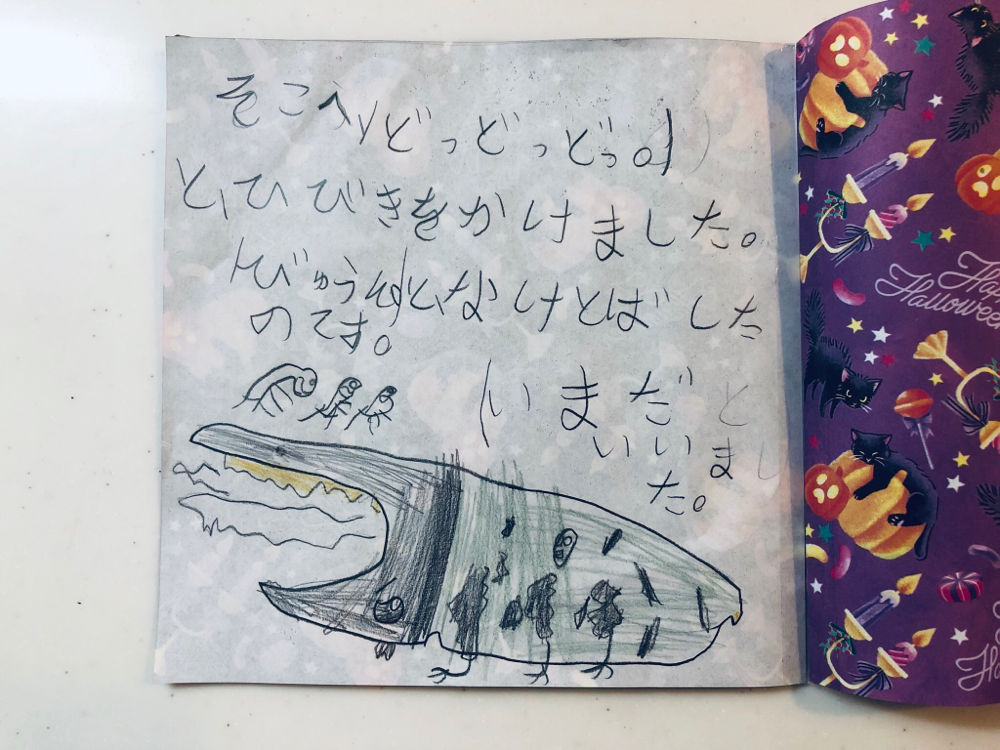 そこへ「どっどっどっ。」
と、ひびきをかけました。
「びゅうん」と、なけとばした
のです。
「いまだと
いいまし
た。
Halloween